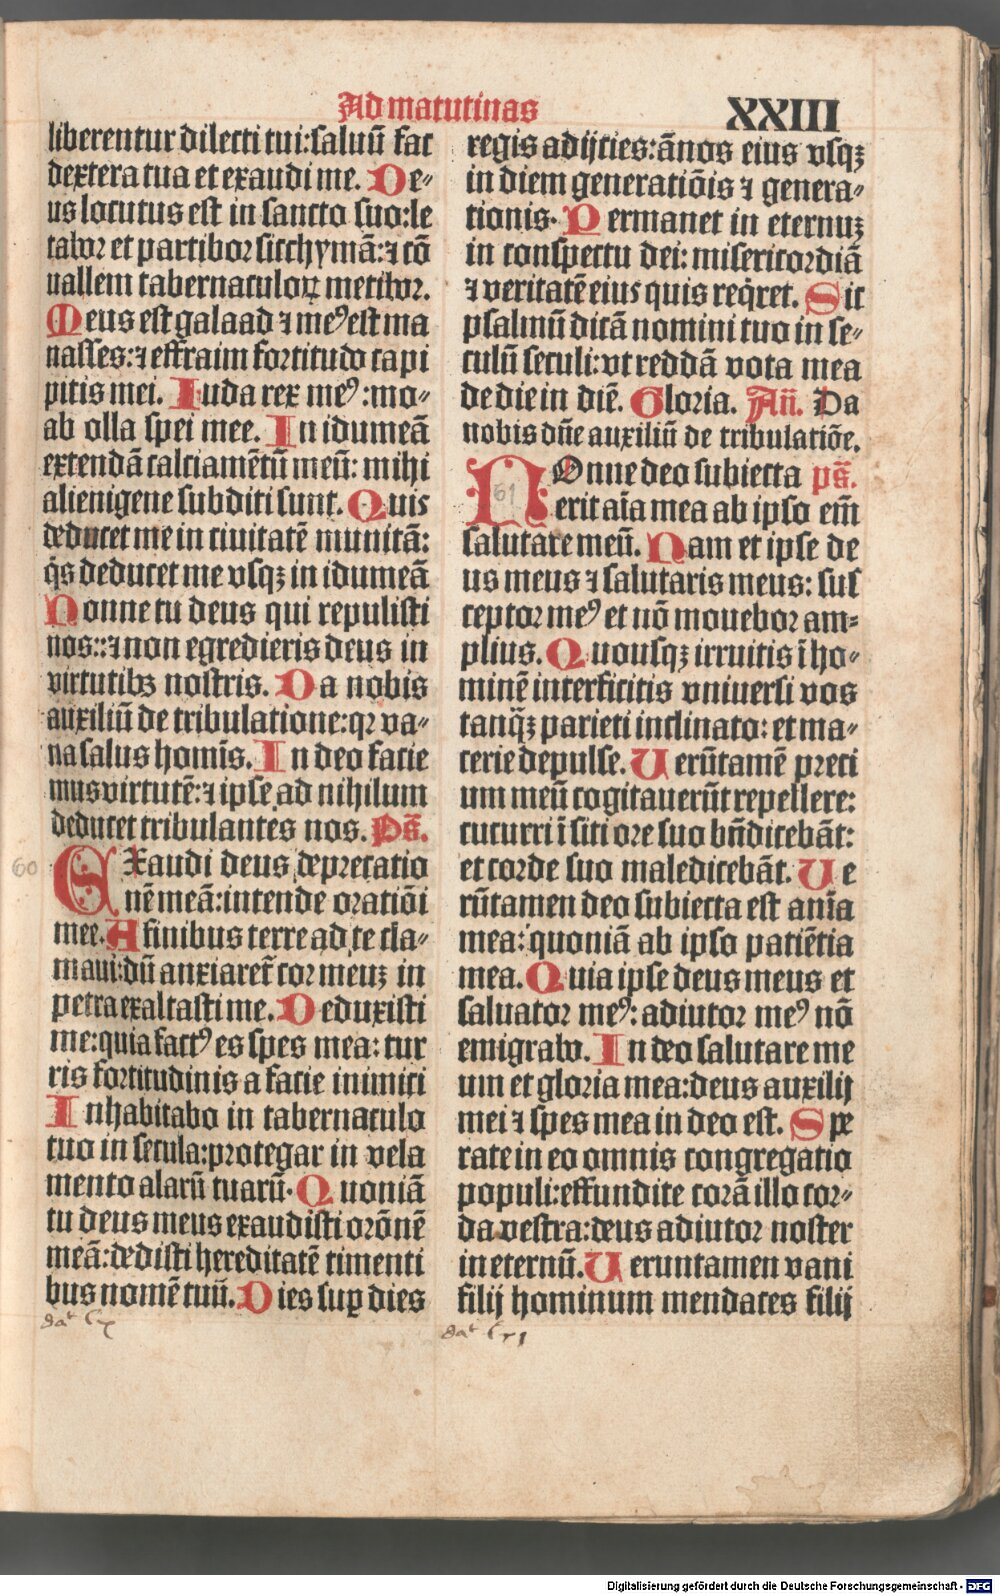 Ad matutinas
XXIII
liberentur dilecti tui:saluū fac
dextera tua et exaudi me. De⸗
us locutus est in sancto suo:le
tabor et partibor sicchymā:⁊ cō
uallem tabernaculoꝝ metibor.
Meus est galaad ⁊ meꝰ est ma
nasses:⁊ effraim fortitudo capi
pitis mei. Iuda rex meꝰ:mo⸗
ab olla spei mee. In idumeā
extendā calciamētū meū: mihi
alienigene subditi sunt. Quis
deducet me in ciuitatē munitā:
q̇s deducet me vsqꝫ in idumeā
Nonne tu deus qui repulisti
nos::⁊ non egredieris deus in
virtutibꝫ nostris. Da nobis
auxiliū de tribulatione:qꝛ va⸗
na salus homīs. In deo facie
mus virtutē:⁊ ipse ad nihilum
deducet tribulantes nos. Ps̄.
60 EXaudi deus deprecatio
nē meā:intende oratiōi
mee. A finibus terre ad te cla⸗
maui:dū anxiaret᷑ cor meuꝫ in
petra exaltasti me. Deduxisti
me:quia factꝰ es spes mea: tur
ris fortitudinis a facie inimici
Inhabitabo in tabernaculo
tuo in secula:protegar in vela
mento alarū tuarū. Quoniā
tu deus meus exaudisti orōnē
meā:dedisti hereditatē timenti
bus nomē tuū. Dies suꝑ dies
regis adijcies:ānos eius vsqꝫ
in diem generatiōis ⁊ genera⸗
tionis. Permanet in eternuꝫ
in conspectu dei: misericordiā
⁊ veritatē eius quis req̇ret. Sic
psalmū dicā nomini tuo in se⸗
culū seculi:vt reddā vota mea
de die in diē. Gloria. Añ. Da
nobis dn̄e auxiliū de tribulatiōe.
61 NOnne deo subiecta ps̄.
erit aīa mea ab ipso em̄
salutare meū. Nam et ipse de
us meus ⁊ salutaris meus: sus
ceptor meꝰ et nō mouebor am⸗
plius. Quousqꝫ irruitis ī ho⸗
minē interficitis vniuersi vos
tanq̄ꝫ parieti inclinato: et ma⸗
cerie depulse. Uerūtamē preci
um meū cogitauerūt repellere:
cucurri ī siti ore suo bn̄dicebāt:
et corde suo maledicebāt. Ue
rūtamen deo subiecta est anīa
mea: quoniā ab ipso patiētia
mea. Quia ipse deus meus et
saluator meꝰ: adiutor meꝰ nō
emigrabo. In deo salutare me
um et gloria mea:deus auxilij
mei ⁊ spes mea in deo est. Spe
rate in eo omnis congregatio
populi:effundite corā illo cor⸗
da vestra:deus adiutor noster
in eternū. Ueruntamen vani
filij hominum mendaces filij
Digitalisierung gefördert durch die Deutsche Forschungsgemeinschaft - DFG